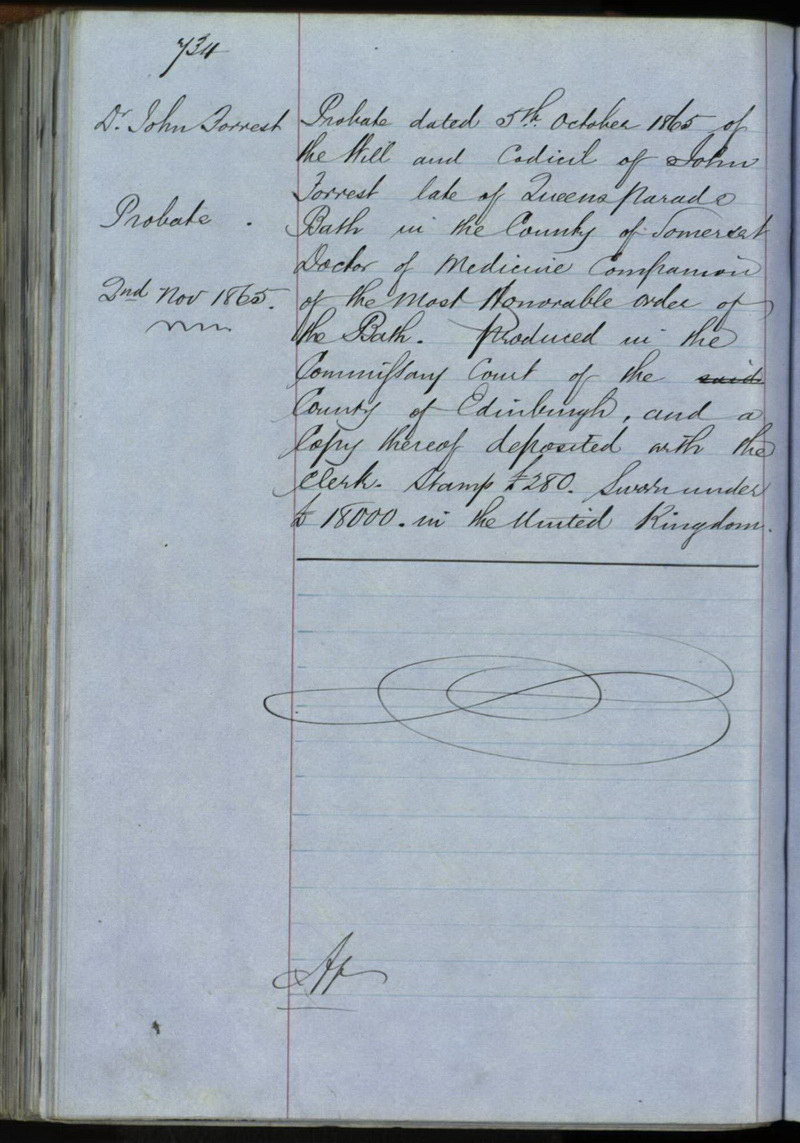 734
Dr. John Forrest
Probate.
2nd Nov 1865.
Probate dated 5th. October 1865 of
the Will and Codicil of John
Forrest late of Queens Parade
Bath in the County of Somerset
Doctor of Medicine Companion
of the Most Honorable order of
the Bath. Produced in the
Commissary Court of the said
County of Edinburgh, and a
Copy thereof deposited with the
Clerk. Stamp £280. Sworn under
£18000. in the United Kingdom.